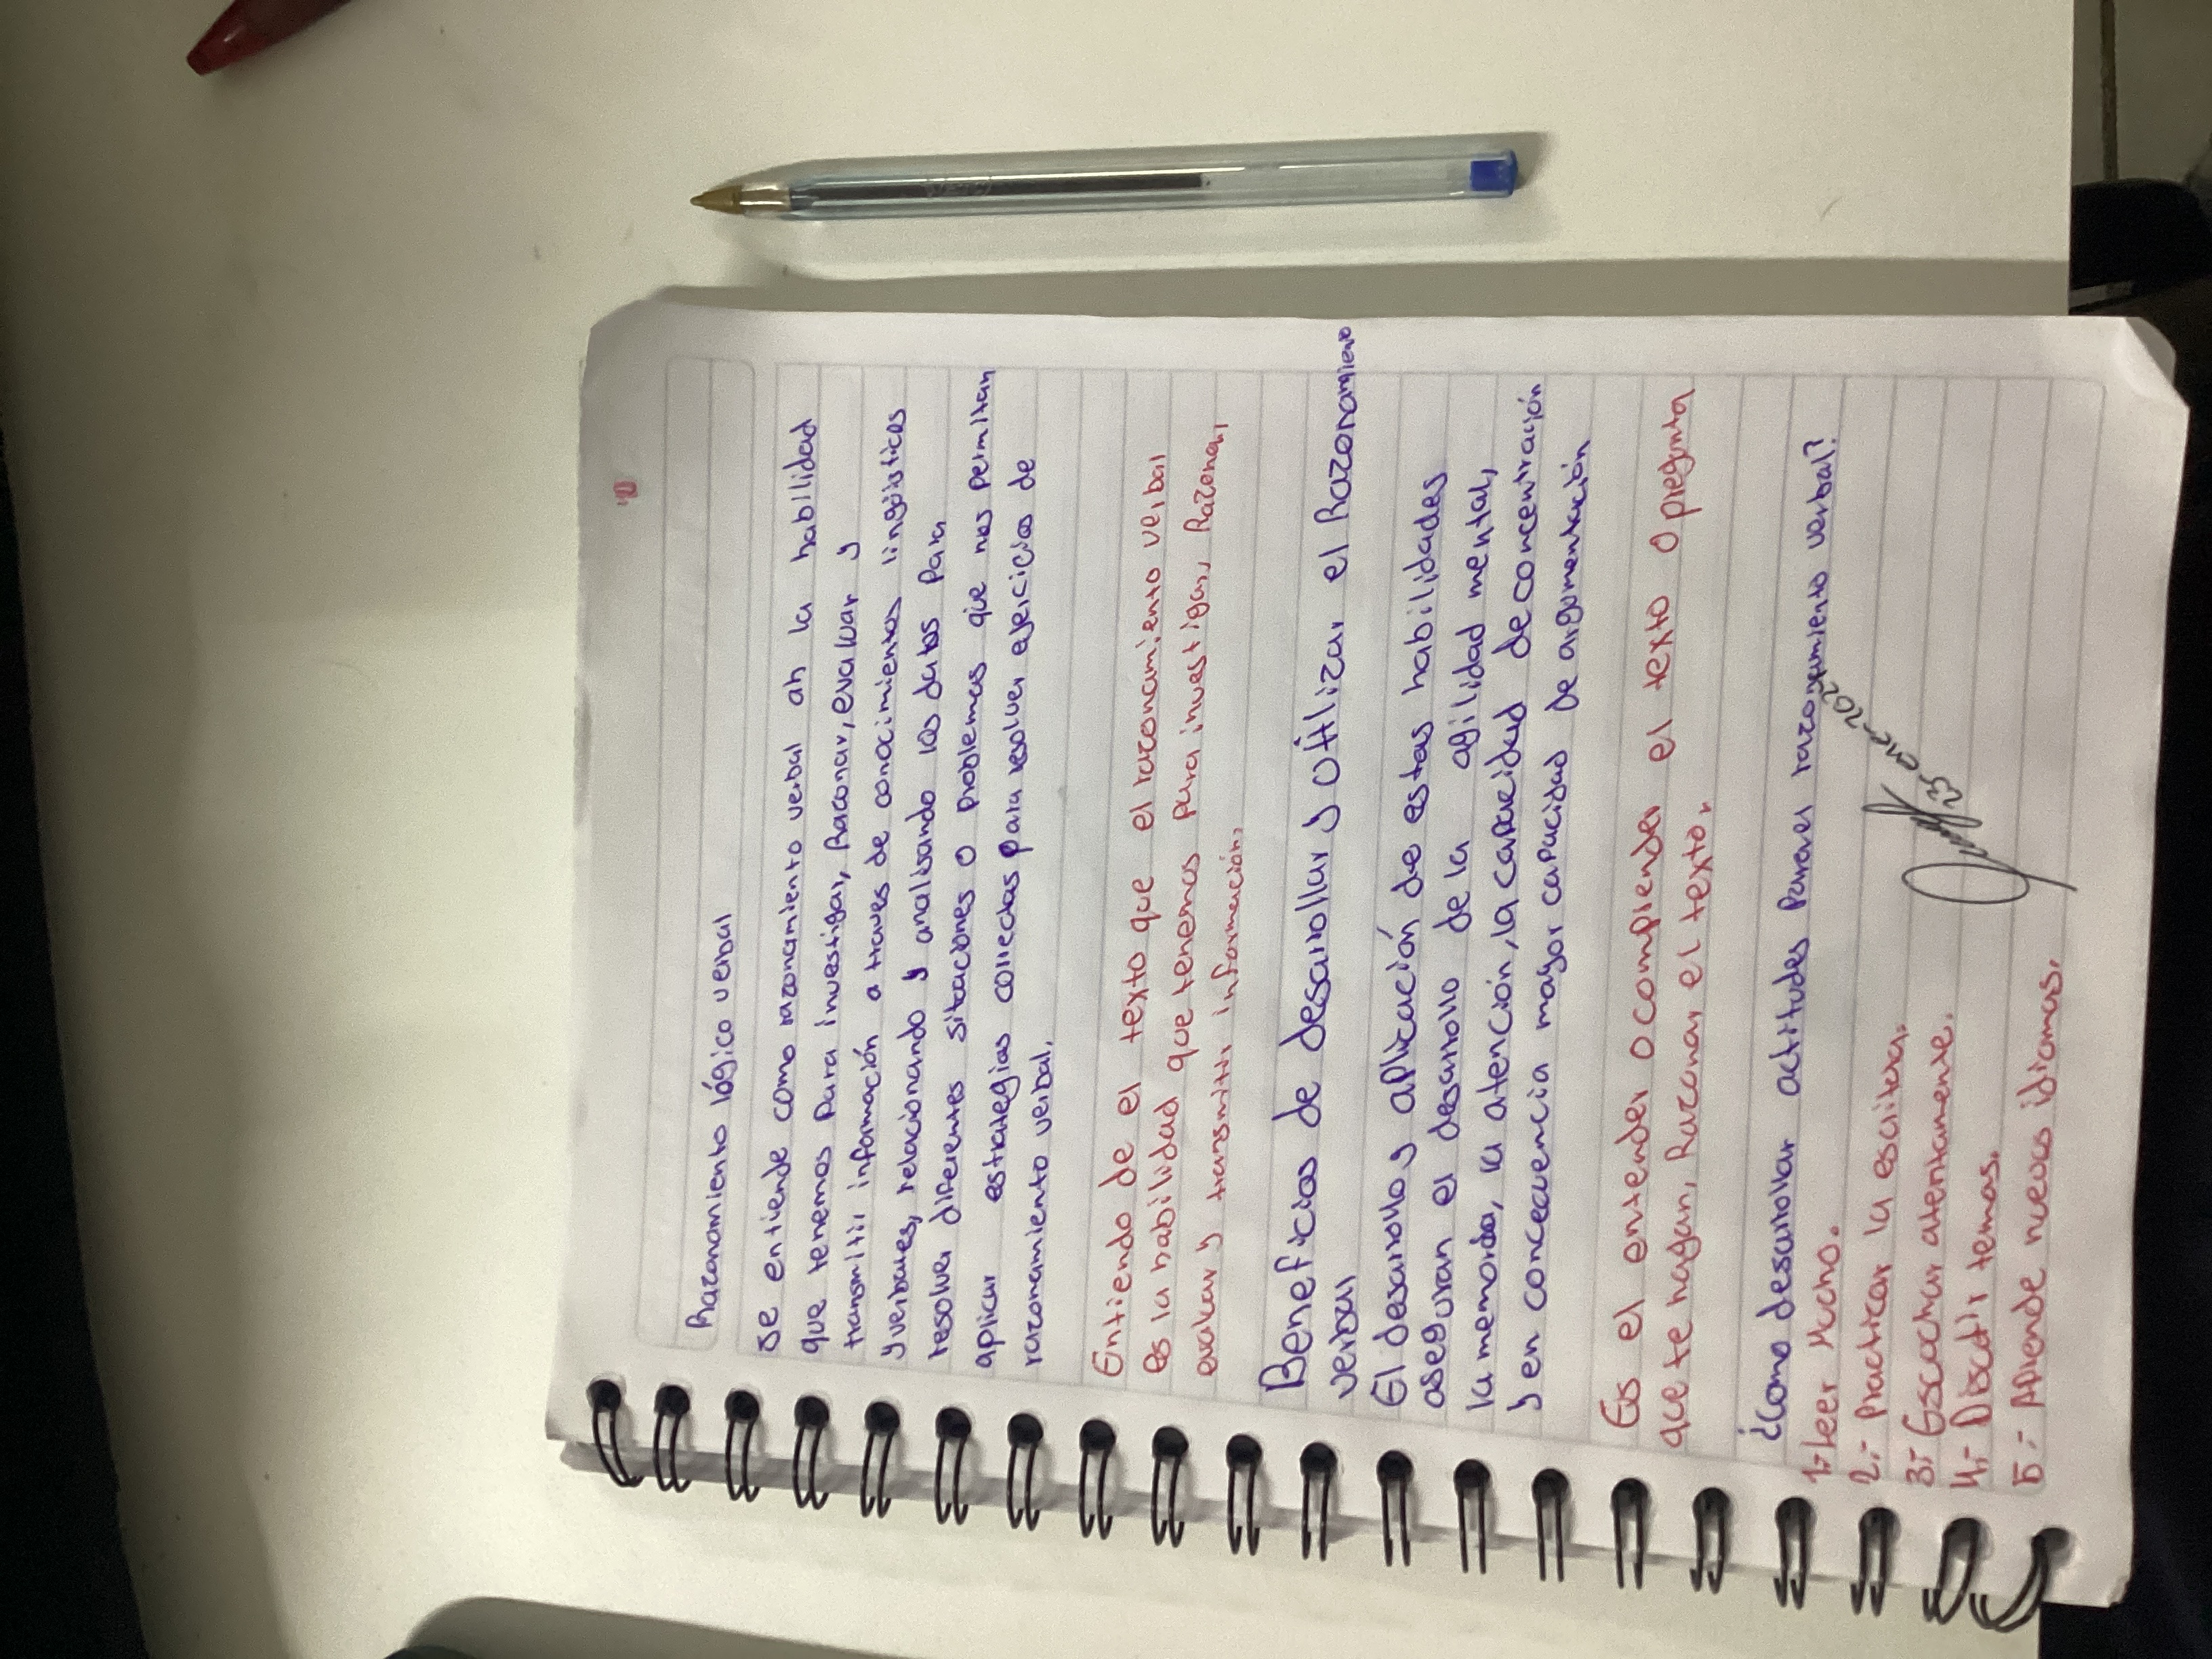 Razonamiento lógico verbal
se entiende como razonamiento verbal ah la habilidad
que tenemos para investigar, Razonar, evaluar y
transmitir información a traves de conocimientos lingüisticos
y verbales, relacionando y analisando los datos para
resolver diferentes sitaciones o problemas que nos permitan
aplicar estrategias correctas para resolver ejercicios de
razonamiento verbal.
Entiendo de el texto que el razonamiento verbal
es la habilidad que tenemos para investigar, Razonar,
evaluar y transmitir información.
Beneficios de desarrollar y útilizar el Razonamiento
verbal
El desarrollo y aplicación de estas habilidades
aseguran el desarrollo de la agilidad mental,
la memoria, la atención, la capacidad de concentración
y en concecuencia mayor capacidad de argumentación
Es el entender o comprender el texto o pregunta
que te hagan, Razonar el texto.
¿como desarrollar actitudes para el razonamiento verbal?
1.- leer Mucho.
2.- Practicar la escritera.
3.- Escuchar atentamente.
4.- Discutir temas.
5.- Aprende nuevos idiomas.